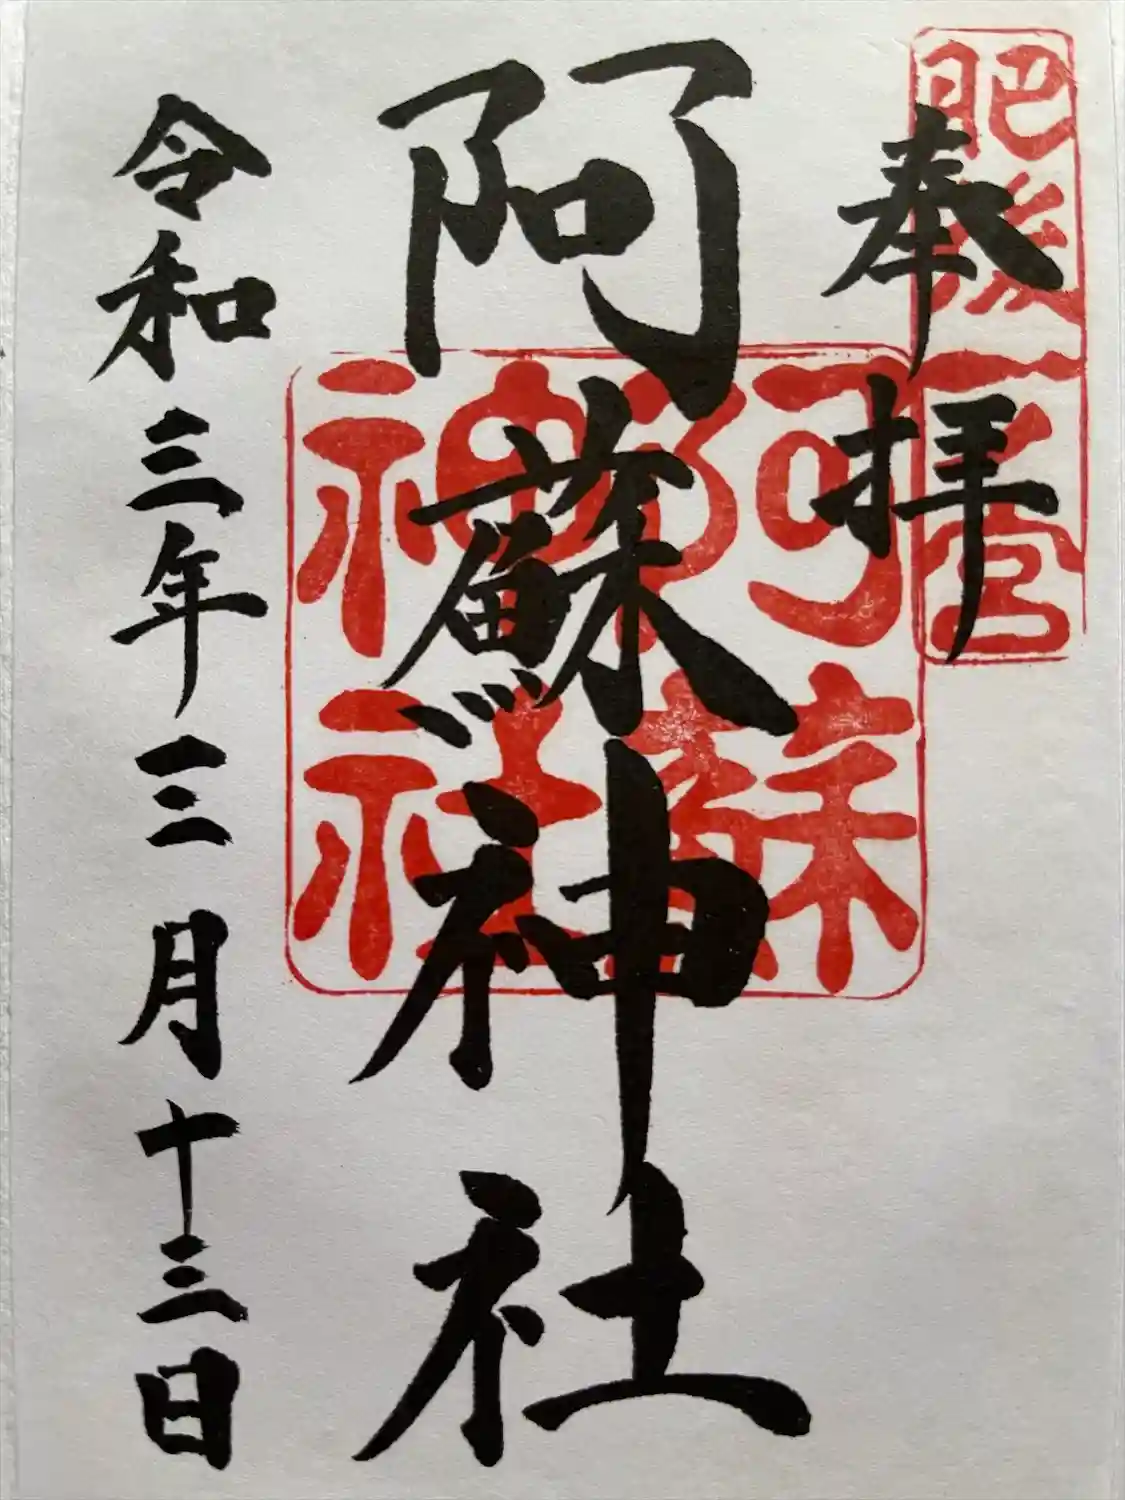 肥後一之宮
奉拝
阿蘇神社
阿蘇神社
令和三年三月十三日